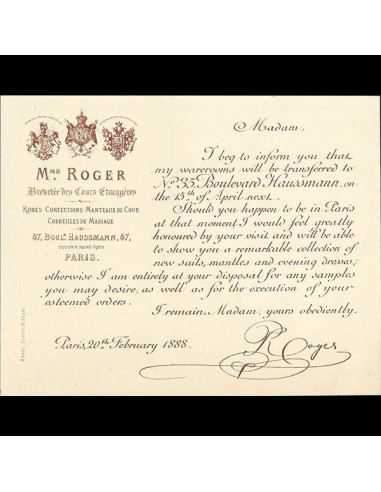 Mme ROGER
Brevetée des Cours Etrangères
ROBES CONFECTIONS MANTEAUX DE COUR
CORBEILLES DE MARIAGE
67, BOULd. HAUSSMANN, 67,
PARIS.
Madam.
I beg to inform you that
my warerooms will be transferred to
No. 35, Boulevard Haussmann, on
the 15th of April next.
Should you happen to be in Paris
at that moment I would feel greatly
honoured by your visit and will be able
to show you a remarkable collection of
new suits, mantles and evening dresses;
otherwise I am entirely at your disposal for any samples
you may desire, as well as for the execution of your
esteemed orders.
I remain, Madam, yours obediently.
Paris, 20th February 1888.
Roger